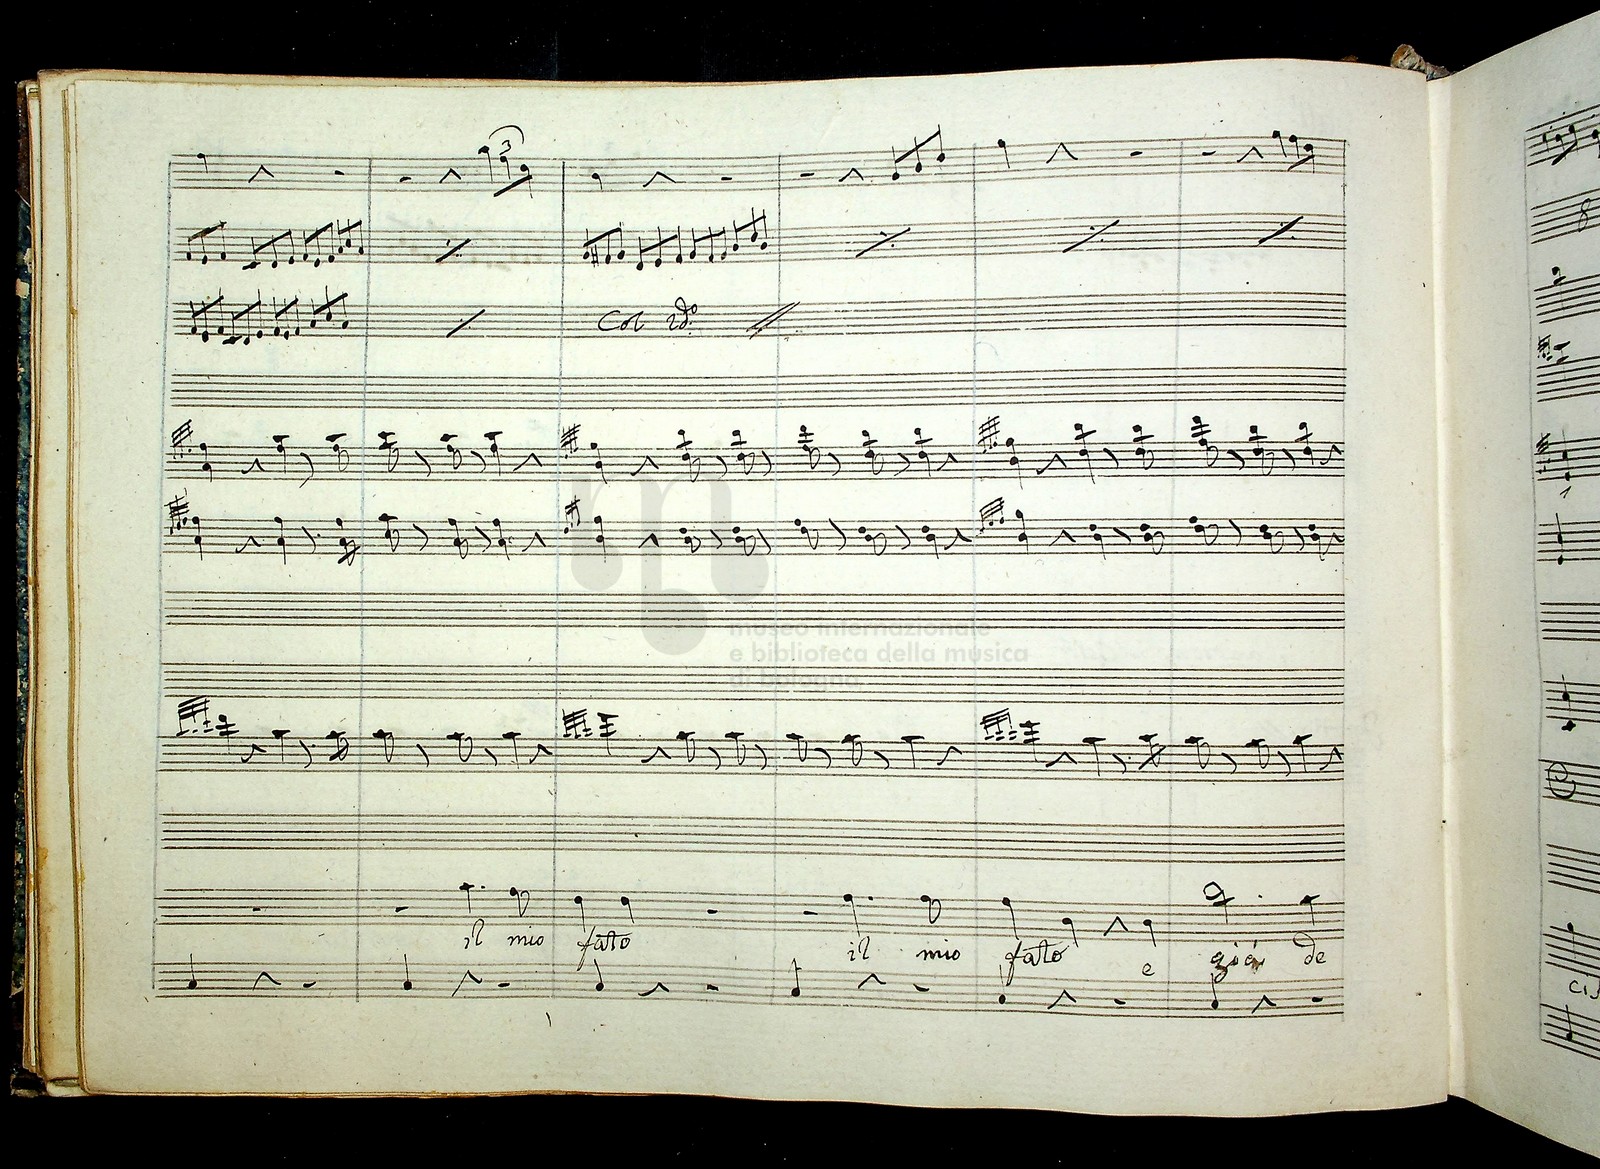 3
Col 2do
museo internazionale
e biblioteca della musica
di bologna
il mio fato il mio fato e già de